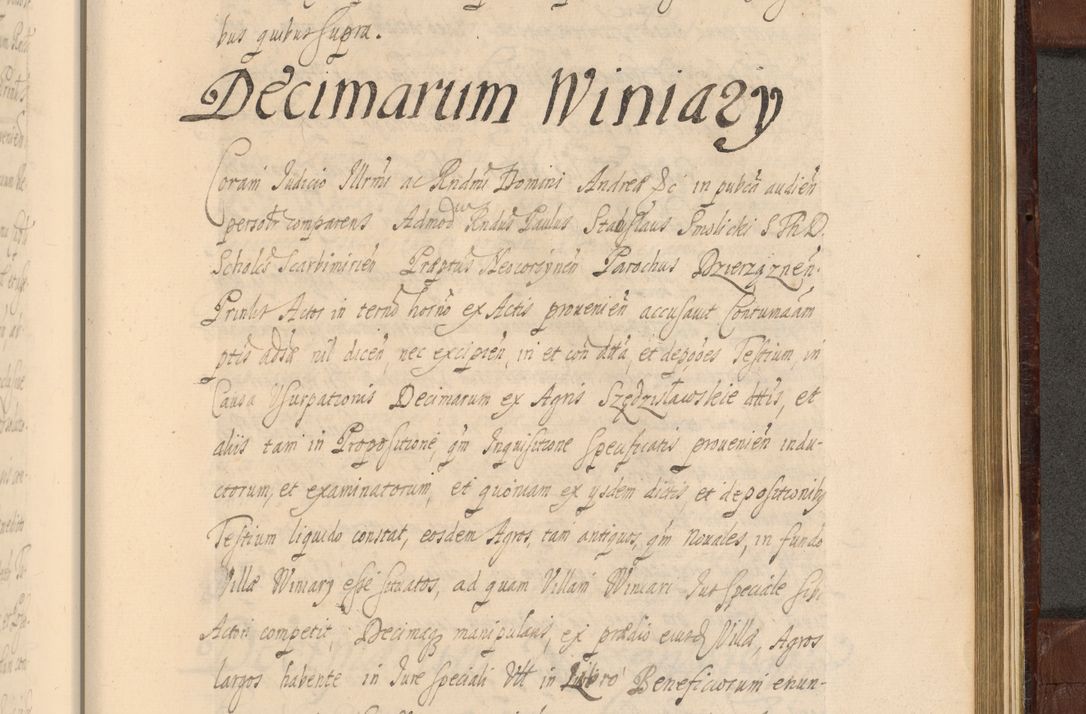 bus quibus supra.
Decimarum Winiary
Coram Judicio Illrmi ac Rndmi Domini Andreæ &c in pubca audien
personlr comparens Admodum Rndus Paulus Stanislaus Smolicki S Th D.
Schols Scarbimirien Præptus Neocorzynen Parochus Dzierząznen
Prinlit Actor in termo horno ex Actis provenien accusavit Contumaam
ptis adsæ nil dicen, nec excipien, in et con dtta, et depoes Testium, in
Causa Usurpationis Decimarum ex Agris Szędzisławskie dttis, et
aliis tam in Propositione, qm Inquisitione specificatis provenien indu-
ctorum, et examinatorum, et quoniam ex ysdem dictis, et depositionibus
Testium liquido constat, eosdem Agros, tam antiquos, qm Novales, in fundo
Villæ Winiary esse situatos, ad quam Villam Winiari Jus speciale sibi
Actori competit, Decimaq manipularis, ex prædio eiusd Villæ, Agros
largos habente in Jure speciali Utt in Libro Beneficiorum enun-